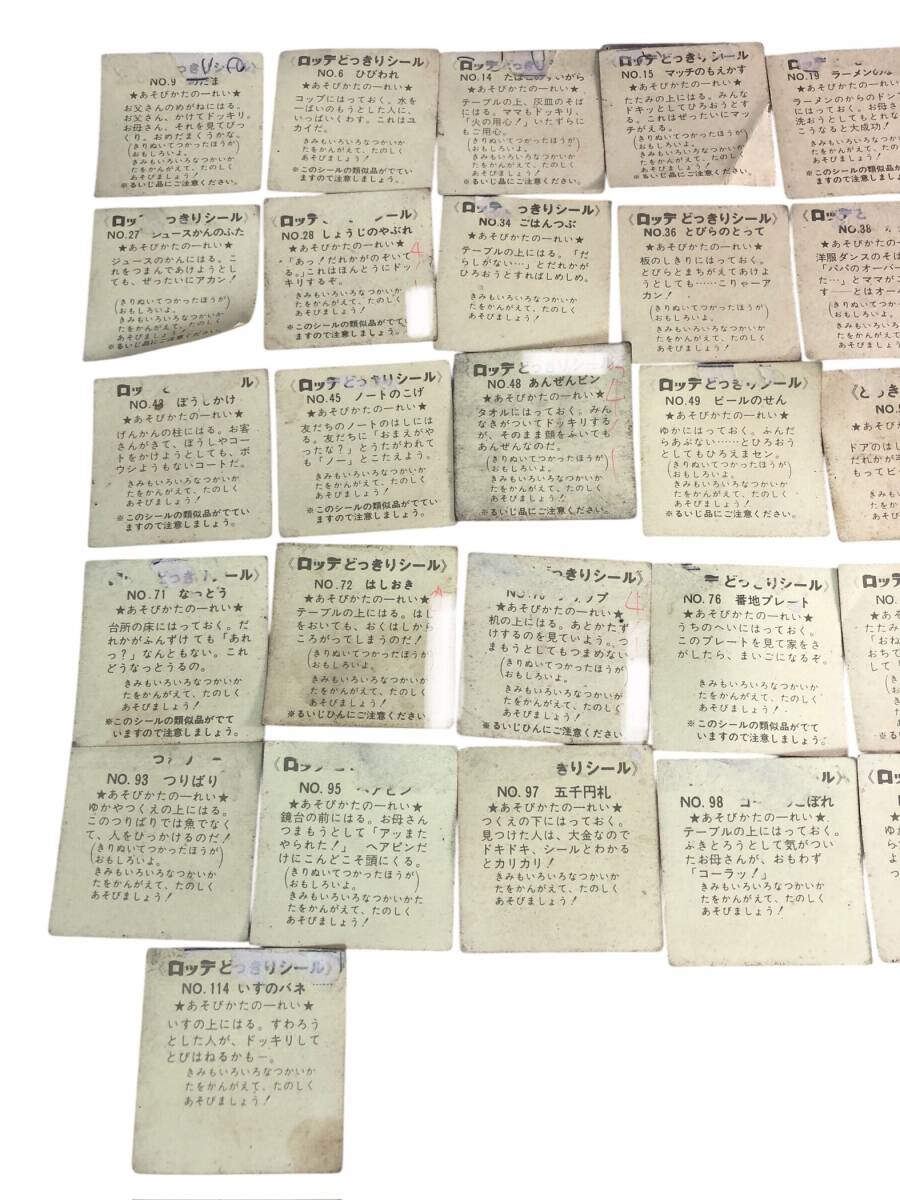 NO.9
★あそびかたの一れい★
お父さんのめがねにはる。
お父さん、かけてドッキリ。
お母さん、それを見てびっ
くり。おめだまくうかな。
(きりぬいてつかったほうが
おもしろいよ。)
きみもいろいろなつかいか
たをかんがえて、たのしく
あそびましょう!
※るいじ品にご注意ください。
《ロッテどっきりシール》
NO.6 ひびわれ
★あそびかたの一れい★
コップにはっておく。水を
一ぱいのもうとした人に、
いっぱいくわす。これはユ
カイだ。
きみもいろいろなつかいか
たをかんがえて、たのしく
あそびましょう!
※このシールの類似品がでてい
ますので注意しましょう。
NO.14 たばこのすいがら
★あそびかたの一れい★
テーブルの上、灰皿のそば
にはる。ママもドッキリ、
「火の用心!」いたずらに
もご用心。
(きりぬいてつかったほうが
おもしろいよ。)
きみもいろいろなつかいか
たをかんがえて、たのしく
あそびましょう!
※るいじ品にご注意ください。
《ロッテどっきりシール》
NO.15 マッチのもえかす
★あそびかたの一れい★
たたみの上にはる。みんな
ドキッとしてひろおうとす
る。これはぜったいにマッ
チがえる。
(きりぬいてつかったほうが
おもしろいよ。)
きみもいろいろなつかいか
たをかんがえて、たのしく
あそびましょう!
※るいじ品にご注意ください。
NO.19
★あそびかたの一
ラーメンのからのドン
にはっておく。お母さ
洗おうとしてもとれな
こうなると大成功!
(きりぬいてつかった
おもしろいよ。
きみもいろいろな
たをかんがえて、
あそびましょう!
※るいじ品にご注意く
NO.27 ジュースかんのふた
★あそびかたの一れい★
ジュースのかんにはる。こ
れをつまんであけようとし
ても、ぜったいにアカン!
(きりぬいてつかったほうが
おもしろいよ。)
きみもいろいろなつかいか
たをかんがえて、たのしく
あそびましょう!
※るいじ品にご注意ください。
NO.28 しょうじのやぶれ
★あそびかたの一れい★
「あっ!だれかがのぞいて
る。」これはほんとうにドッ
キリするぞ。
きみもいろいろなつかいか
たをかんがえて、たのしく
あそびましょう!
※このシールの類似品がでてい
ますので注意しましょう。
NO.34 ごはんつぶ
★あそびかたの一れい★
テーブルの上にはる。「だ
らしがない…」とだれかが
ひろおうとすればしめしめ。
きみもいろいろなつかいか
たをかんがえて、たのしく
あそびましょう!
《ロッテどっきりシール》
NO.36 とびらのとって
★あそびかたの一れい★
板のしきりにはっておく。
とびらとまちがえてあけよ
うとしても……こりゃー
アカン!
(きりぬいてつかったほうが
おもしろいよ。)
きみもいろいろなつかいか
たをかんがえて、たのしく
あそびましょう!
NO.38
★あそびかたの
洋服ダンスのそば
「パパのオーバー
た…」とママがこ
す――とはオー
きみもいろいろ
たをかんがえて
あそびましょう
※このシールの類似
ますので注意しま
NO.43 ぼうしかけ
★あそびかたの一れい★
げんかんの柱にはる。お客
さんがきて、ぼうしやコー
トをかけようとしても、ボ
ウシようもないコートだ。
きみもいろいろなつかいか
たをかんがえて、たのしく
あそびましょう!
※このシールの類似品がでてい
ますので注意しましょう。
《ロッテどっきりシール》
NO.45 ノートのこげ
★あそびかたの一れい★
友だちのノートのはしには
る。友だちに「おまえがや
ったな?」とうたがわれて
も「ノー」とこたえよう。
きみもいろいろなつかいか
たをかんがえて、たのしく
あそびましょう!
※このシールの類似品がでてい
ますので注意しましょう。
NO.48 あんぜんピン
★あそびかたの一れい★
タオルにはっておく。みん
ながきがついてドッキリする
が、そのまま顔をふいても
あんぜんなのだ。
(きりぬいてつかったほうが
おもしろいよ。)
きみもいろいろなつかいか
たをかんがえて、たのしく
あそびましょう!
※るいじ品にご注意ください。
《ロッテどっきりシール》
NO.49 ビールのせん
★あそびかたの一れい★
ゆかにはっておく。ふんだ
らあぶない……とひろおう
としてもひろえまセン。
(きりぬいてつかったほうが
おもしろいよ。)
きみもいろいろなつかいか
たをかんがえて、たのしく
あそびましょう!
※るいじ品にご注意ください。
ドアのはし
だれかが
もってビ
NO.71 なっとう
★あそびかたの一れい★
台所の床にはっておく。だ
れかがふんずけても「あれ
っ?」なんともない。これ
どうなっとうるの。
きみもいろいろなつかいか
たをかんがえて、たのしく
あそびましょう!
※このシールの類似品がでて
いますので注意しましょう。
《ロッテどっきりシール》
NO.72 はしおき
★あそびかたの一れい★
テーブルの上にはる。はし
をおいても、おくはしから
ころがってしまうのだ!
(きりぬいてつかったほうが
おもしろいよ。)
きみもいろいろなつかいか
たをかんがえて、たのしく
あそびましょう!
※るいじひんにご注意ください
★あそびかたの一れい★
机の上にはる。あとかたず
けするのを見ていよう。つ
まもうとしてもつまめない
(きりぬいてつかったほうが
おもしろいよ。)
きみもいろいろなつかいか
たをかんがえて、たのしく
あそびましょう!
※るいじひんにご注意ください
NO.76 番地プレート
★あそびかたの一れい★
うちのへいにはっておく。
このプレートを見て家をさ
がしたら、まいごになるぞ。
きみもいろいろなつかいか
たをかんがえて、たのしく
あそびましょう!
※このシールの類似品がでて
いますので注意しましょう。
NO.93 つりばり
★あそびかたの一れい★
ゆかやつくえの上にはる。
このつりばりでは魚でなく
て、人をひっかけるのだ!
(きりぬいてつかったほうが
おもしろいよ。)
きみもいろいろなつかいか
たをかんがえて、たのしく
あそびましょう!
NO.95 ヘアピン
★あそびかたの一れい★
鏡台の前にはる。お母さん
つまもうとして「アッまた
やられた!」 ヘアピンだ
けにこんどこそ頭にくる。
(きりぬいてつかったほうが
おもしろいよ。)
きみもいろいろなつかいかた
たをかんがえて、たのしく
あそびましょう!
きりシール》
NO.97 五千円札
★あそびかたの一れい★
つくえの下にはっておく。
見つけた人は、大金なので
ドキドキ、シールとわかる
とカリカリ!
きみもいろいろなつかいか
たをかんがえて、たのしく
あそびましょう!
NO.98
★あそびかたの一れい★
テーブルの上にはっておく。
ふきとろうとして気がつい
たお母さんが、おもわず
「コーラッ!」
きみもいろいろなつかいか
たをかんがえて、たのしく
あそびましょう!
《ロッテどっきりシール》
NO.114 いすのバネ
★あそびかたの一れい★
いすの上にはる。すわろう
とした人が、ドッキリして
とびはねるかもー。
きみもいろいろなつかいか
たをかんがえて、たのしく
あそびましょう!